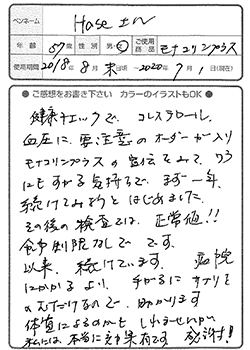 ペンネーム Hase エハ
年齢 57歳 性別 男・女 ご使用商品 モナコリンプラス
使用期間 2018年 8月 末日頃 ~ 2020年 7月 1日(現在)
● ご感想をお書き下さい カラーのイラストもOK ●
健康チェックで、コレステロール、
血圧に 要注意の オーダーが入り
モナコリンプラスの 宣伝をみて、ワラ
にもすがる気持ちで、まず一年、
続けてみようと はじめました。
その後の 検査では、正常値!!
食事制限なしで です。
以来、続けています。 病院
にかかるより、手がるに サプリを
のむだけなので、助かります
体質によるのかも しれませんが、
私には、本当に効果有です。感謝!!